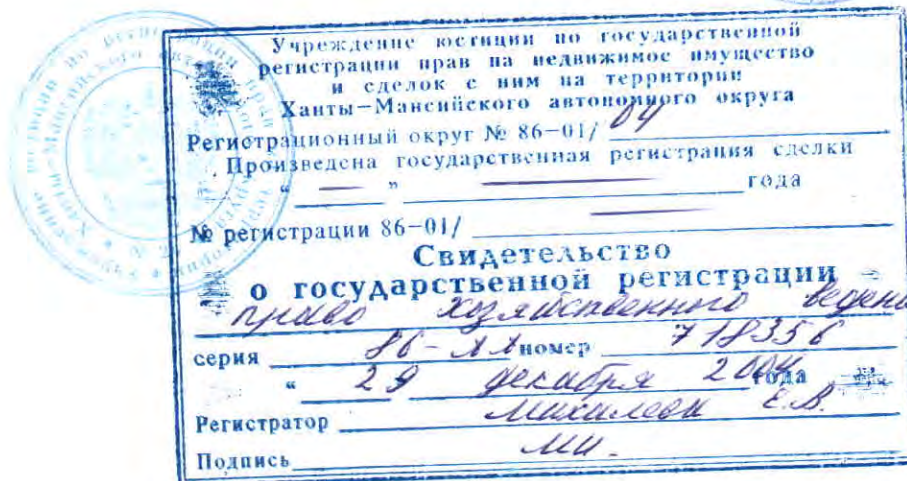 Учреждение юстиции по государственной
регистрации прав на недвижимое имущество
и сделок с ним на территории
Ханты-Мансийского автономного округа
Регистрационный округ № 86-01/ 04
Произведена государственная регистрация сделки
" — " — года
№ регистрации 86-01/ —
Свидетельство
о государственной регистрации
право хозяйственного веден
серия 86-АА номер 718356
" 29 декабря 2004 года
Регистратор Е.В.
Подпись